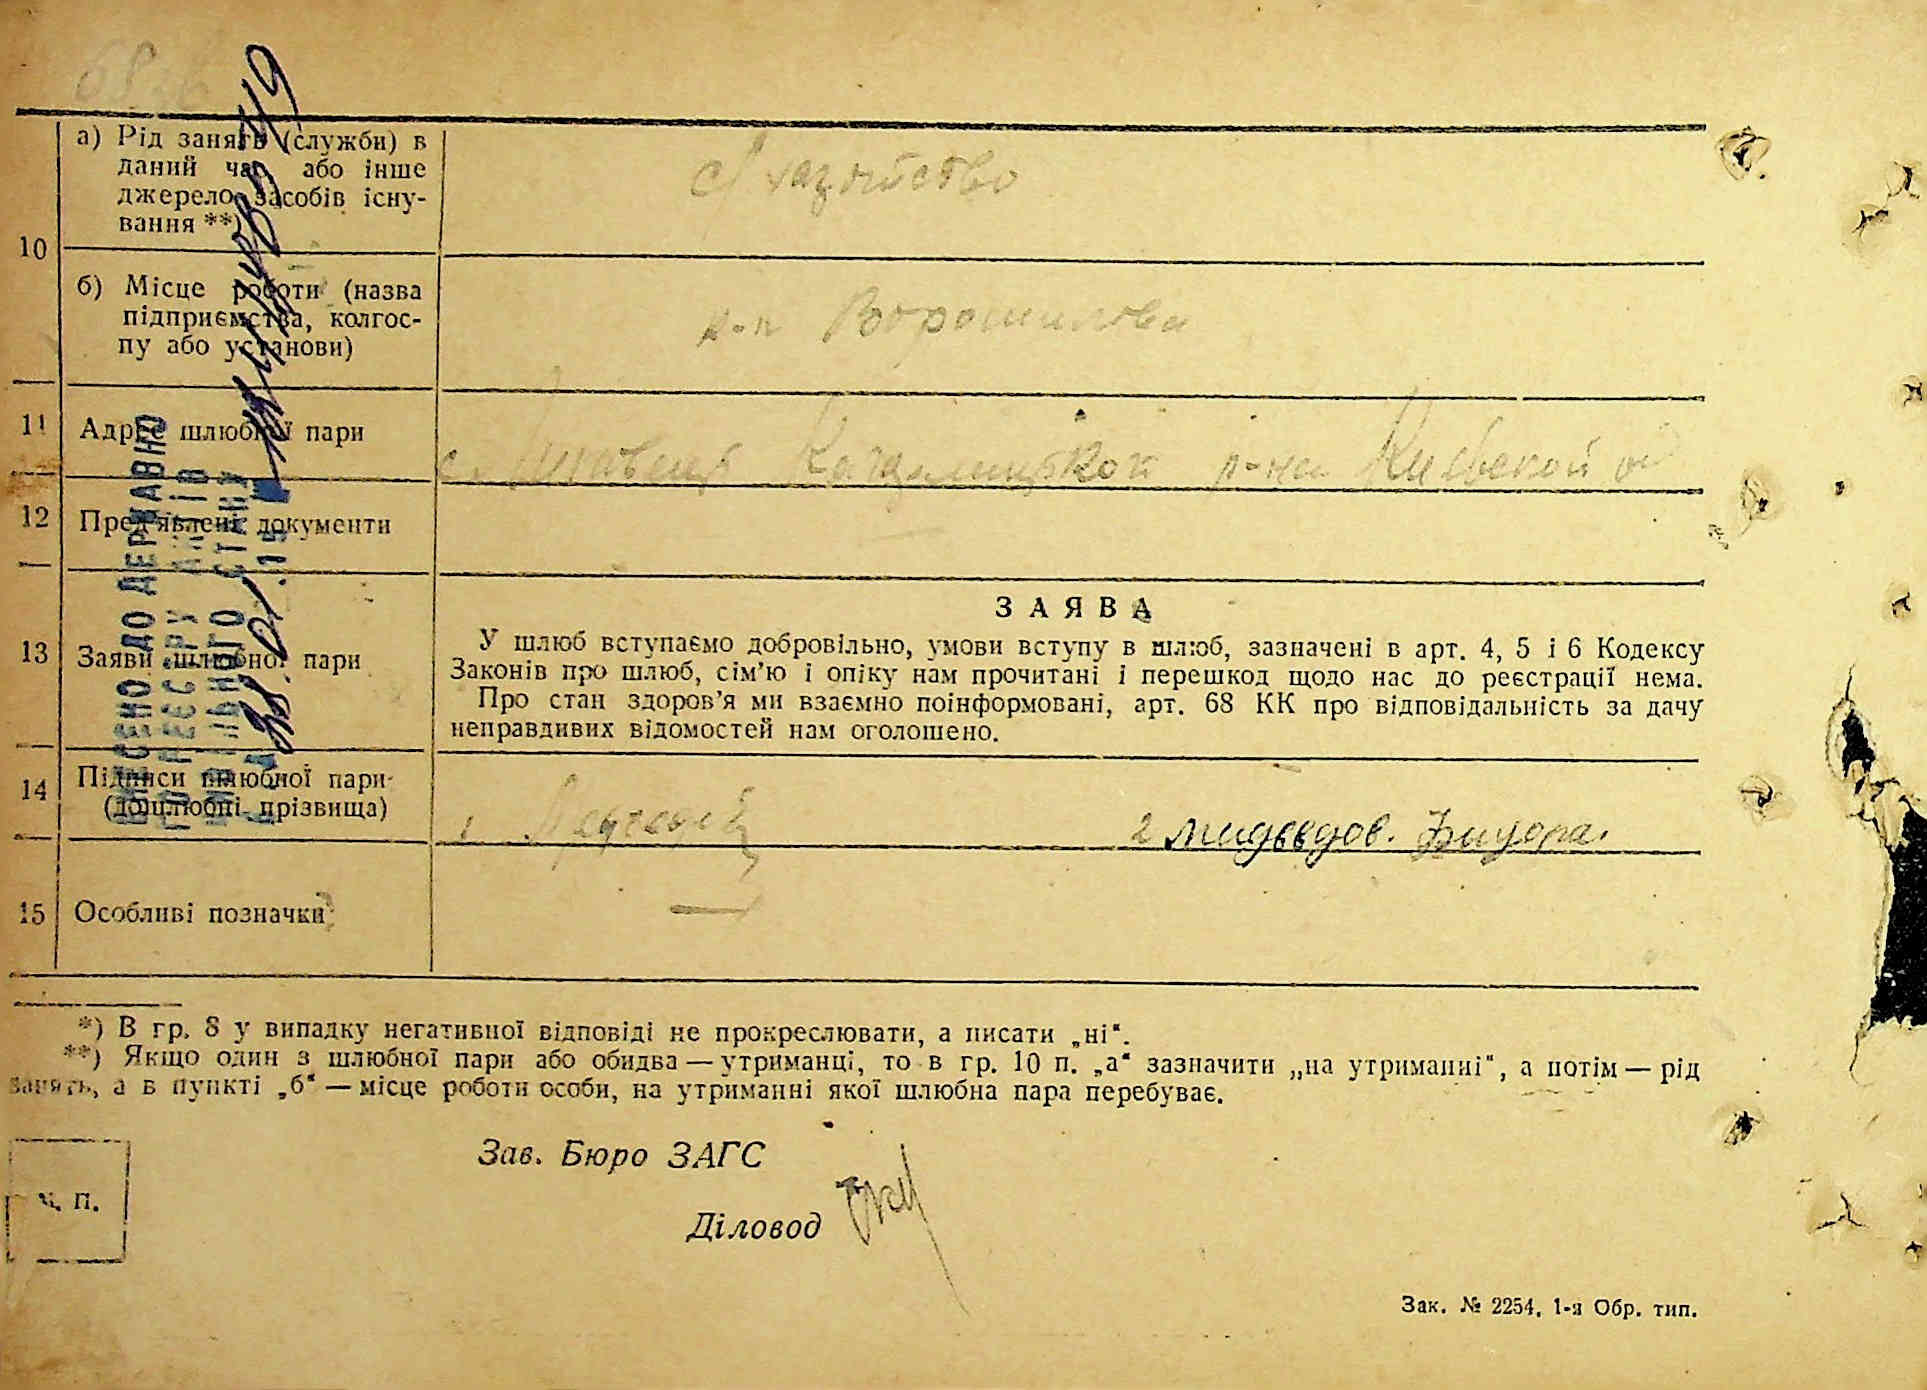 а) Рід занять (служби) в
даний час або інше
джерело засобів існу-
вання **)
с/ хазяйство
10
б) Місце роботи (назва
підприємства, колгос-
пу або установи)
Ворошилова
11 Адрес шлюбної пари
р-на Киевской
12 Пред'явлені документи
13 Заяви шлюбної пари
ЗАЯВА
У шлюб вступаємо добровільно, умови вступу в шлюб, зазначені в арт. 4, 5 і 6 Кодексу
Законів про шлюб, сім'ю і опіку нам прочитані і перешкод щодо нас до реєстрації нема.
Про стан здоров'я ми взаємно поінформовані, арт. 68 КК про відповідальність за дачу
неправдивих відомостей нам оголошено.
14 Підписи шлюбної пари
(дошлюбні прізвища)
1
2 Мидведов.
15 Особливі позначки
ВНЕСЕНО ДО ДЕРЖАВНО
ГО РЕЄСТРУ АКТІВ
ЦИВІЛЬНОГО СТАНУ
*) В гр. 8 у випадку негативної відповіді не прокреслювати, а писати „ні“.
**) Якщо один з шлюбної пари або обидва — утриманці, то в гр. 10 п. „а“ зазначити „на утриманні“, а потім — рід
занять, а в пункті „б“ — місце роботи особи, на утриманні якої шлюбна пара перебуває.
Зав. Бюро ЗАГС
М. П.
Діловод
Зак. № 2254, 1-я Обр. тип.